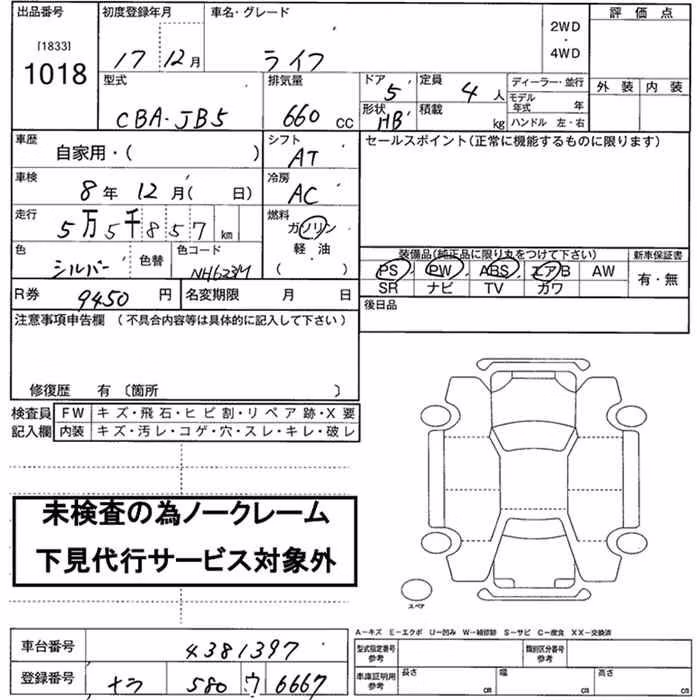 出品番号 初度登録年月 車名・グレード 評価点
[1833] 1018 17 12月 ライフ 2WD・4WD 外装 内装
型式 CBA-JB5 排気量 660 CC ドア 5 定員 4人 ディーラー・並行
形状 HB 積載 kg モデル年式 年
ハンドル 左・右
車歴 自家用・( ) シフト AT セールスポイント(正常に機能するものに限ります)
車検 8年12月( 日) 冷房 AC
走行 5万5千857km 燃料 ガソリン 軽・油 ( )
色 シルバー 色替 色コード NH623M
装備品(純正品に限り丸をつけて下さい) 新車保証書
PS PW ABS エアB AW 有・無
SR ナビ TV カワ
R券 9450円 名変期限 月 日 後日品
注意事項申告欄 (不具合内容等は具体的に記入して下さい)
修復歴 有 〔箇所 〕
検査員記入欄 FW キズ・飛石・ヒビ割・リペア跡・X要
内装 キズ・汚レ・コゲ・穴・スレ・キレ・破レ
未検査の為ノークレーム
下見代行サービス対象外
スペア
A−キズ E−エクボ U−凹み W−補修跡 S−サビ C−腐食 XX−交換済
車台番号 4381397 型式指定番号 参考 類別区分番号 参考
登録番号 ナラ 580 ウ 6667 車庫証明用 参考 長さ cm 幅 cm 高さ cm